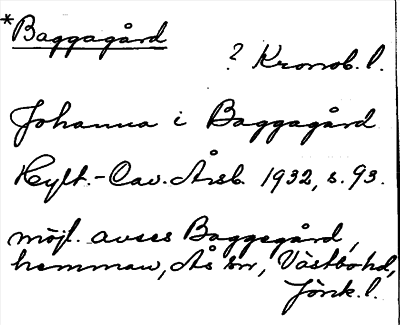 *Baggagård
? Kronob. l.
Johanna i Baggagård
Hylt.-Cav. Årsb. 1932, s. 93.
möjl. avses Baggegård,
hemman, Ås sn, Västbohd,
Jönk. l.